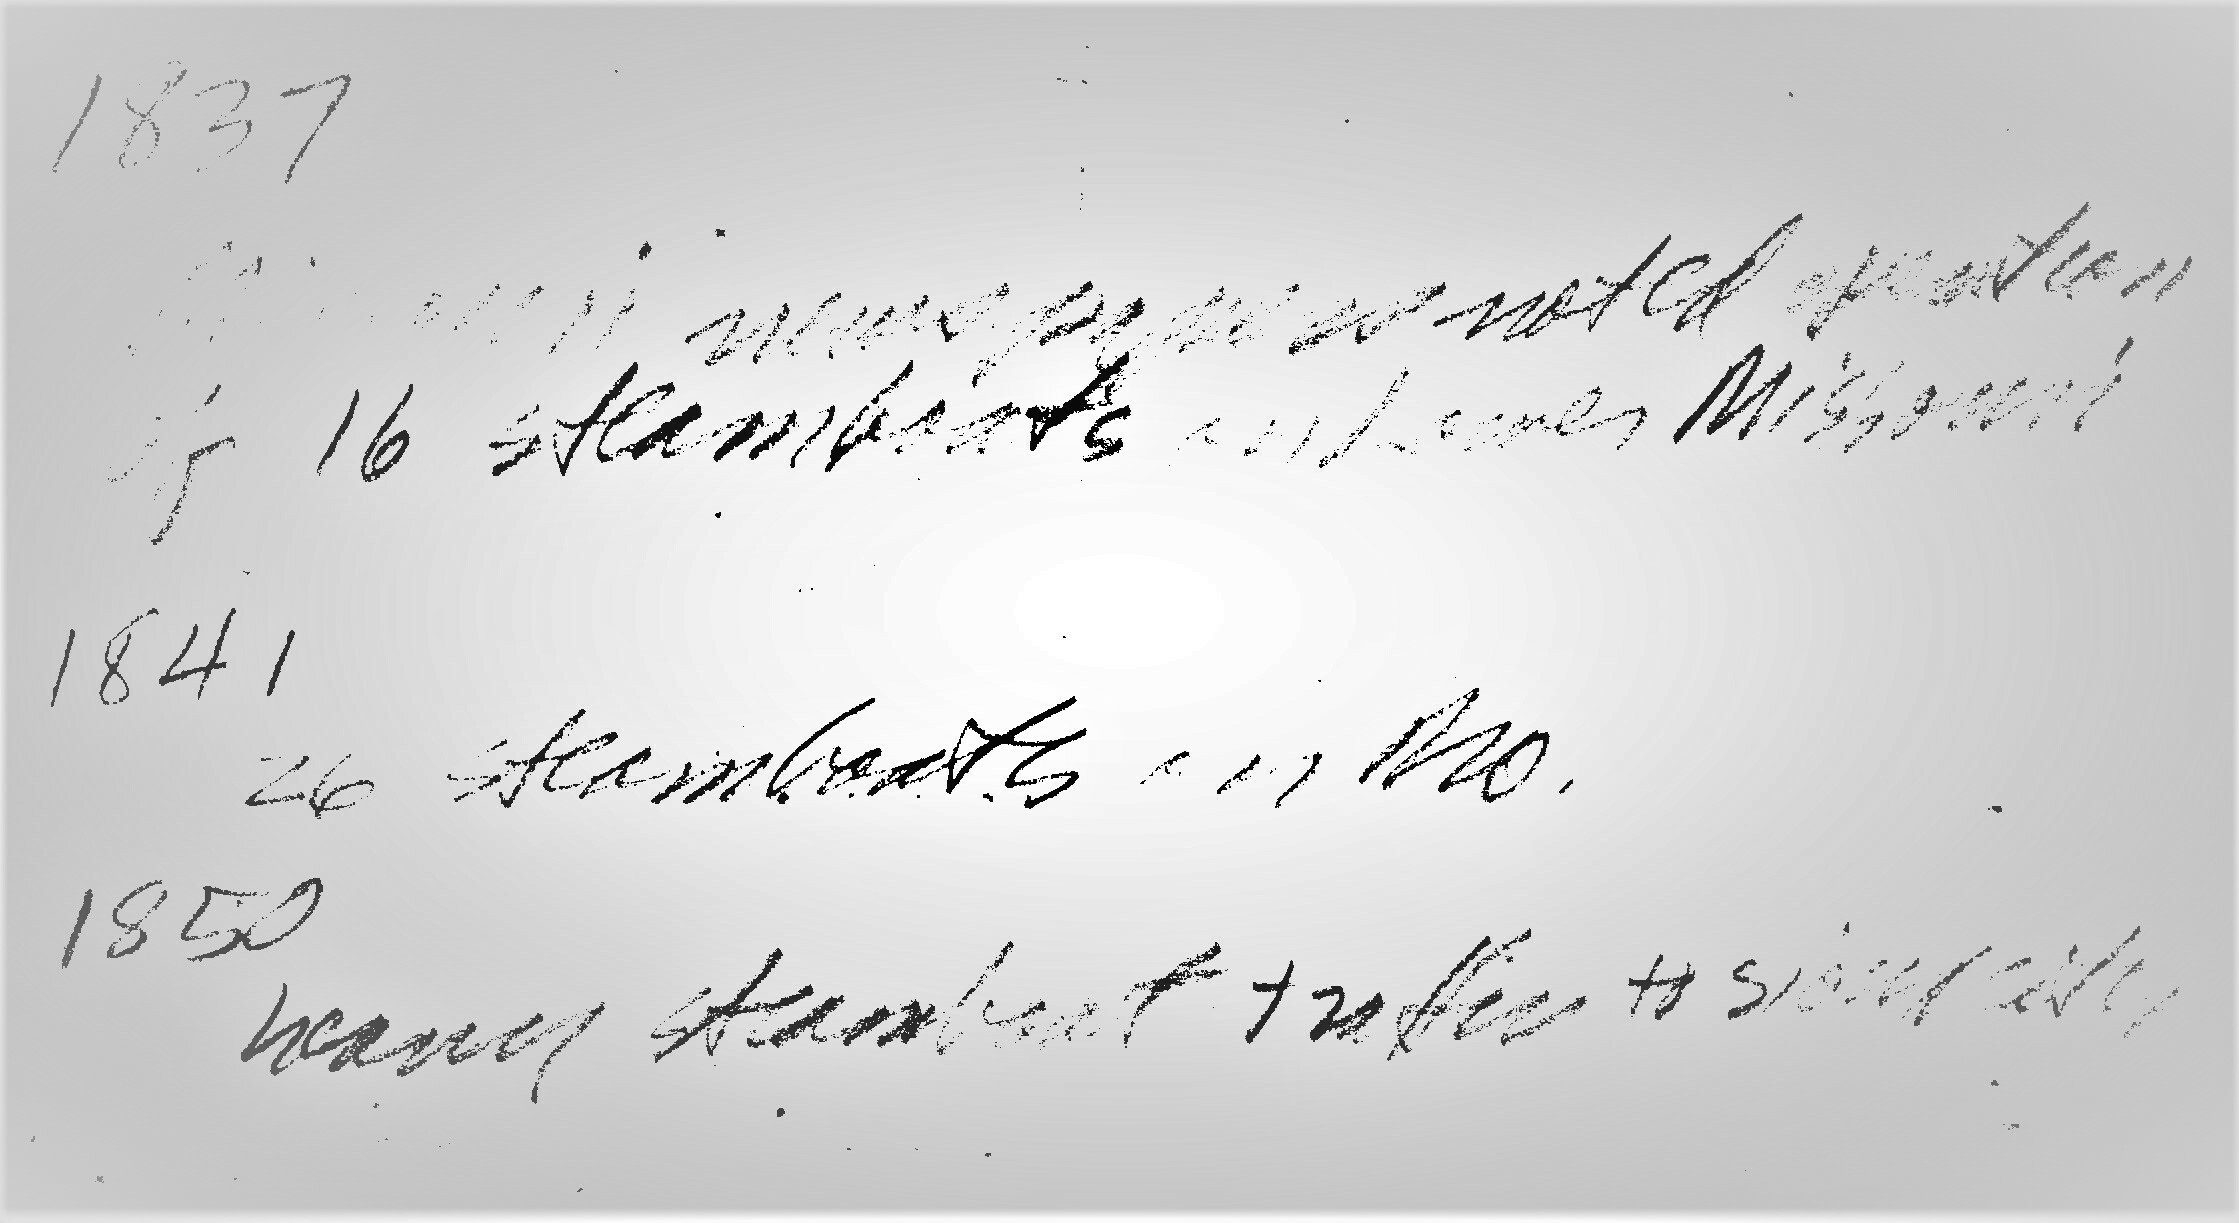 1837
newspaper noted operation
of 16 steamboats on Lower Missouri
1841
26 steamboats on Mo.
1850
heavy steamboat traffic to Sioux City